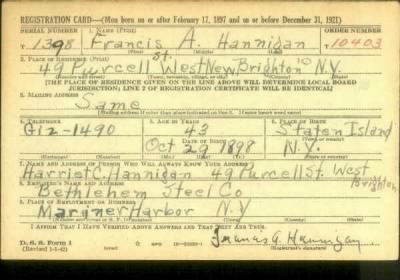 REGISTRATION CARD—(Men born on or after February 17, 1897 and on or before December 31, 1921)
SERIAL NUMBER 1. NAME (Print) ORDER NUMBER
T 1398 Francis A. Hannigan 10403
2. PLACE OF RESIDENCE (Print)
49 Purcell St. West New Brighton 10 N.Y.
(Number and street) (Town, township, village, or city) (County) (State)
[THE PLACE OF RESIDENCE GIVEN ON THE LINE ABOVE WILL DETERMINE LOCAL BOARD
JURISDICTION; LINE 2 OF REGISTRATION CERTIFICATE WILL BE IDENTICAL]
3. MAILING ADDRESS
Same
[Mailing address if other than place indicated on line 2. If same insert word same]
4. TELEPHONE 5. AGE IN YEARS 6. PLACE OF BIRTH
GI2-1490 43 Staten Island
DATE OF BIRTH
Oct 29 1898 N.Y.
(Exchange) (Number) (Mo.) (Day) (Yr.) (State or country)
7. NAME AND ADDRESS OF PERSON WHO WILL ALWAYS KNOW YOUR ADDRESS
Harriet C. Hannigan 49 Purcell St. West Brighton
8. EMPLOYER'S NAME AND ADDRESS
Bethlehem Steel Co
9. PLACE OF EMPLOYMENT OR BUSINESS
Mariner Harbor N.Y
(Number and street or R. F. D. number) (Town) (County) (State)
I AFFIRM THAT I HAVE VERIFIED ABOVE ANSWERS AND THAT THEY ARE TRUE.
D. S. S. Form 1
(Revised 1-1-42)
Francis A. Hannigan
(Registrant's signature)